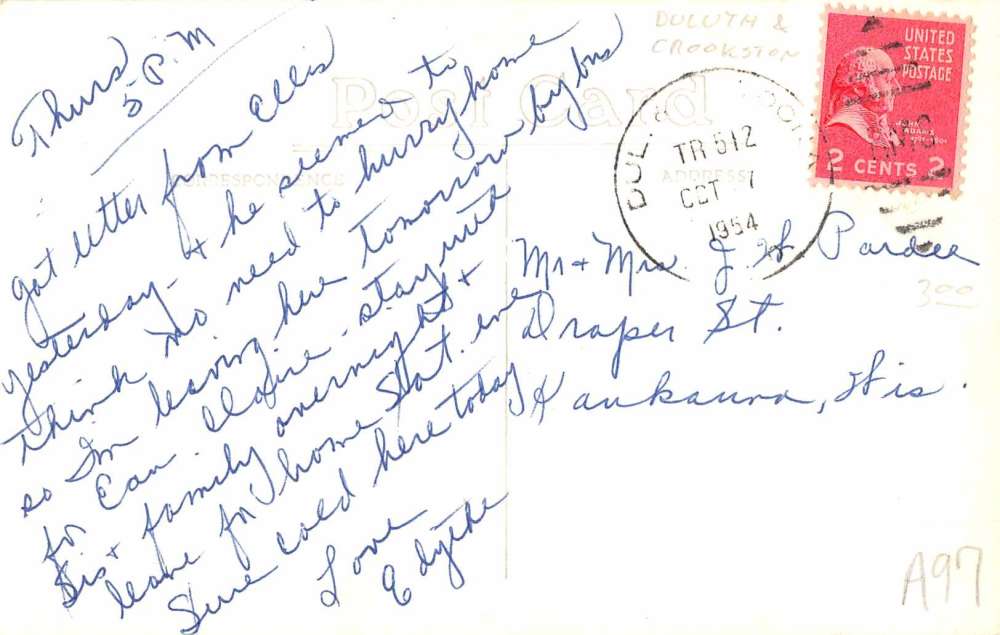 Thurs
5 P.M
Got letter from Ellis
yesterday - & he seemed to
think no need to hurry home
so Im leaving here tomorrow by bus
for Eau Claire - stay with
Sis & family overnight &
leave for home Sat. eve
Sure cold here today
Love
Edythe
Post Card
CORRESPONDENCE
ADDRESS
DULUTH &
CROOKSTON
DUL
TR 512
OCT 7
1954
UNITED
STATES
POSTAGE
JOHN
ADAMS
2 CENTS 2
Mr & Mrs. J. W Pardee
Draper St.
Kaukauna, Wis.
300
A97